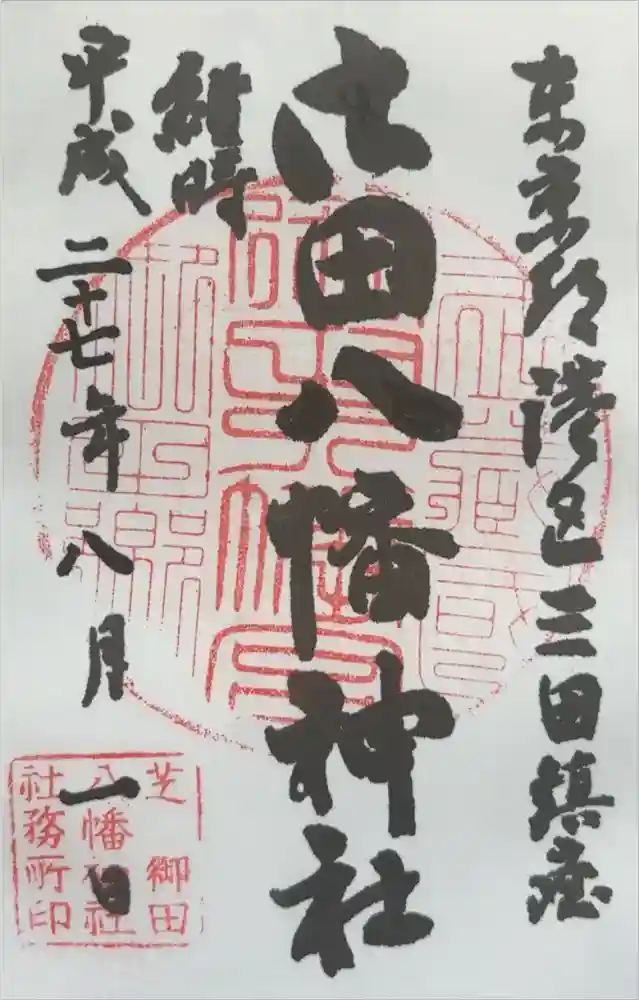 東京都港区三田鎮座
御田八幡神社
維時
平成二十七年八月一日
芝御田
八幡神社
社務所印